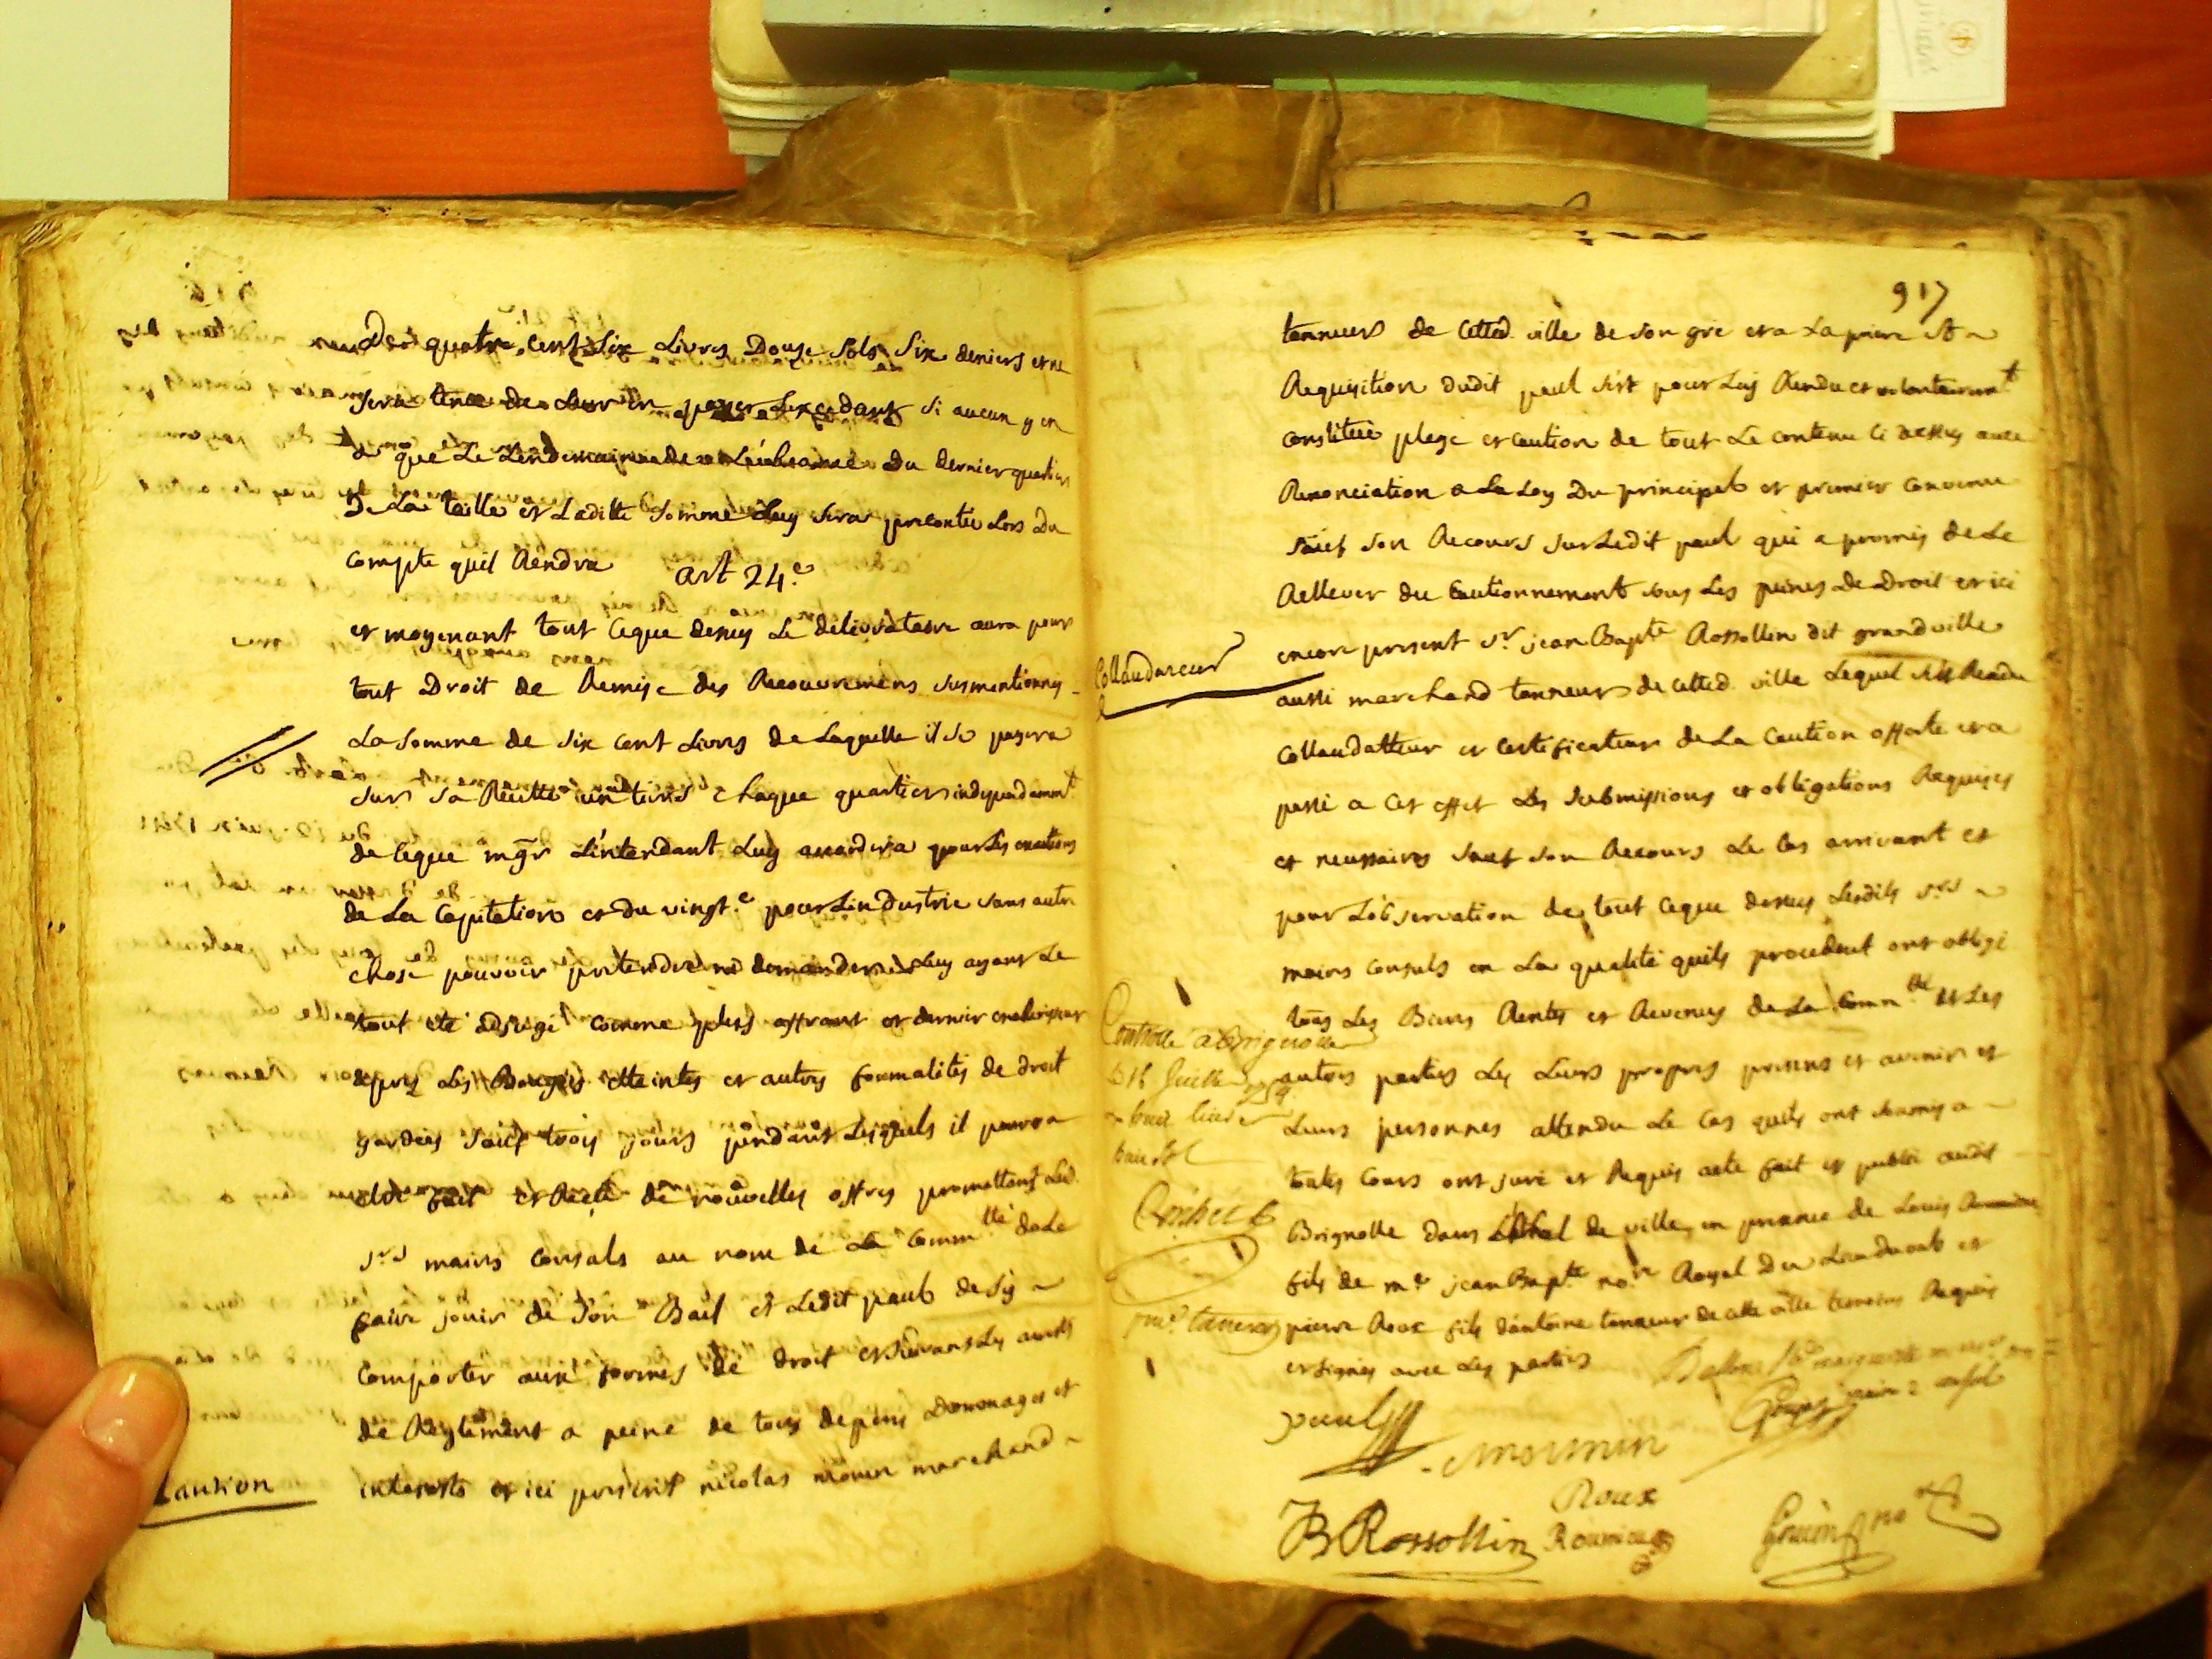 des quatre cent six Livres Douze sols six deniers et ne
sera tenu de leur en payer Lexcedant si aucun y en
a que Le Lendemain de Léchéance Du dernier quartier
De La taille et Laditte somme Luy sera precontée Lors Du
compte quil Rendra
art 24.e
et moyenant tout ceque dessus Le délivrataire aura pour
tout Droit de Remise des Recouvremens susmentionnés
La somme de six cent Livres de Laquelle il se payera
sur sa Recette un tiers chaque quartier independamt
de ceque mgr Lintendant Luy accordera pour Les
de La Capitation et du vingt.e pour Lindustrie sans autre
chose pouvoir pretendre ni demander Luy ayant Le
tout été adjugé comme plus offrant et dernier encherisseur
apres Les Bougies etteintes et autres formalités de droit
gardées sauf trois jours pendant Lesquels il pourra
etre fait et Recu de nouvelles offres promettans Led.
srs maires consuls au nom de La Commté de Le
faire jouir de son Bail et Ledit paul de sy
comporter aux formes de droit et suivans Les arrets
de Reglement a peine de tous depens Dommages et
interests et ici present nicolas mounin marchand
Caution
917
tanneur de cetted. ville de son gré et a La priere et
Requisition dudit paul sest pour Luy Rendu et volontairemt
constitué plege et caution de tout Le contenu ci dessus avec
Renonciation a La Loy Du principal et premier convenu
sauf son Recours sur Ledit paul qui a promis de Le
Rellever du Cautionnement sous Les peines De Droit et ici
encore present sr. jean Bapte Rossollin dit grandville
Collaudateur
aussi marchand tanneur de cetted. ville Lequel sest Rendu
collaudatteur et certificateur de La Caution offerte et a
passé a cet effet Les submissions et obligations Requises
et necessaires sauf son Recours Le cas arrivant et
pour Lobservation de tout ceque dessus Lesdits srs
maires consuls en La qualité quils procedent ont obligé
tous Les Biens Rentes et Revenus de La Commté et Les
autres parties Les Leurs propres presens et avenir et
Leurs personnes attendu Le cas quils ont soumis a
toutes Cours ont juré et Requis acte fait et publié audit
Brignolle dans Lhotel de ville en presence de Louis
fils de me jean Bapte nore Royal Du Lieu
pierre Roux fils dantoine tanneur de cette ville temoins Requis
et signés avec Les parties
Controllé a Brignolle
16 juillet
paul
mounin
Roux
JB Rossollin
Gouin not